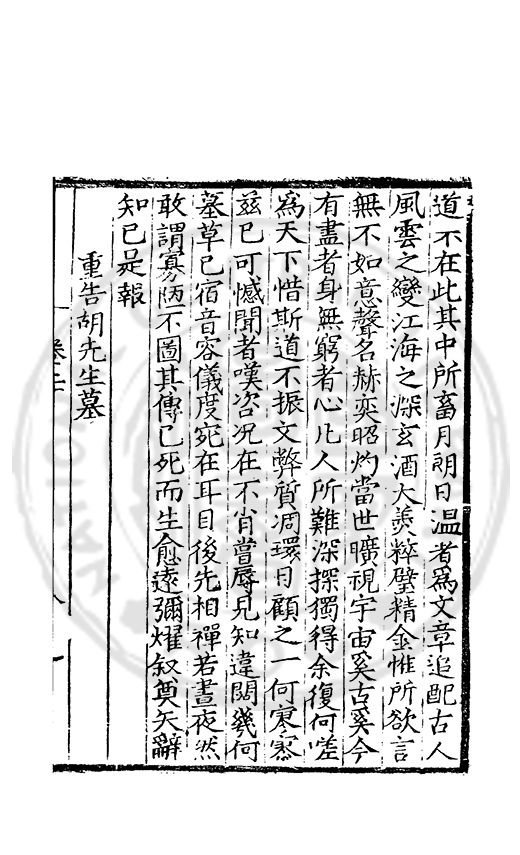 道不在此其中所畜月朗日温著為文章追配古人
風雲之變江海之深玄酒大羹粹璧精金惟所欲言
無不如意聲名赫奕昭灼當世曠視宇宙奚古奚今
有盡者身無窮者心凡人所難深探獨得余復何嗟
為天下惜斯道不振文弊質凋環目顧之一何寂寥
茲已可憾聞者嘆咨况在不肖嘗辱見知違闊幾何
墓草已宿音容儀度宛在耳目後先相禪若晝夜然
敢謂寡陋不圖其傳已死而生愈遠彌燿叙奠矢辭
知已是報
重告胡先生墓